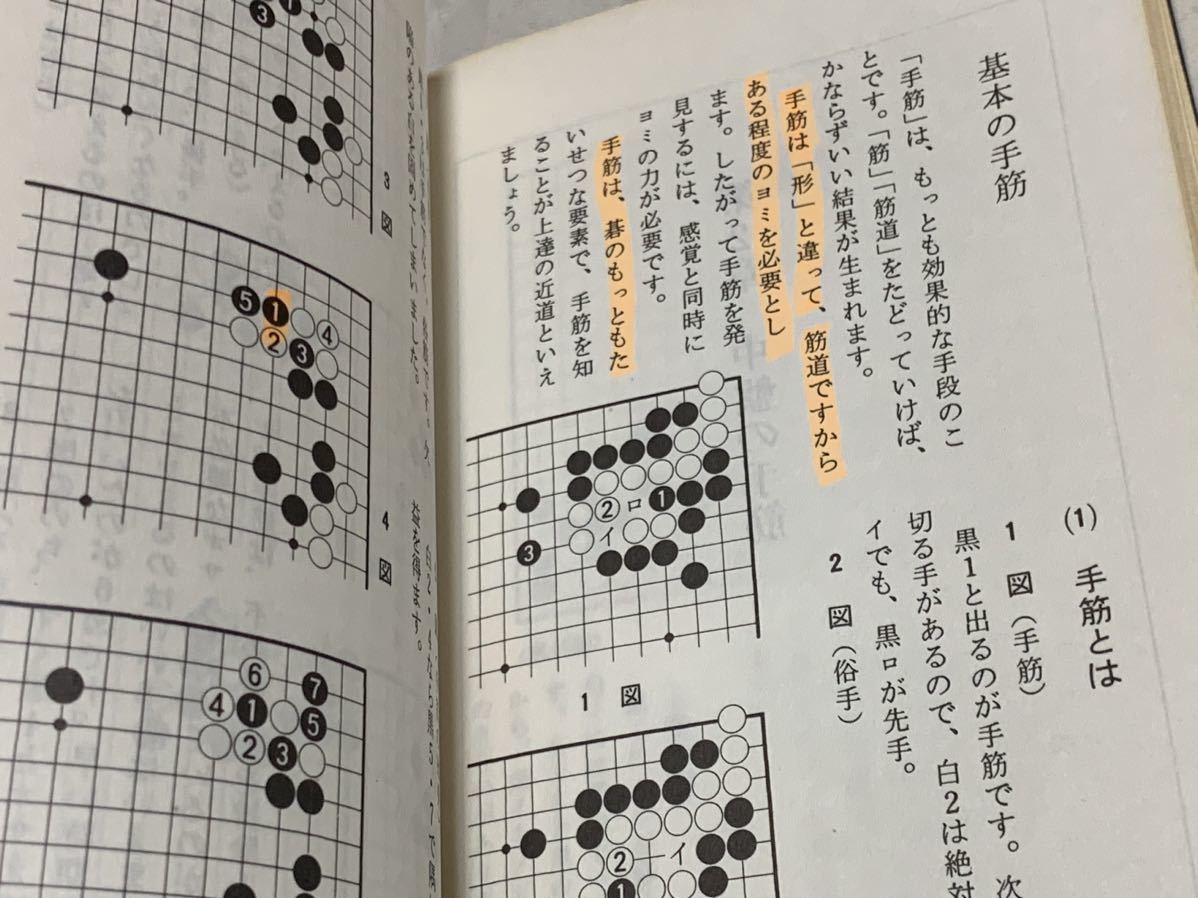 基本の手筋
「手筋」は、もっとも効果的な手段のこ
とです。「筋」「筋道」をたどっていけば、
かならずいい結果が生まれます。
手筋は「形」と違って、筋道ですから
ある程度のヨミを必要とし
ます。したがって手筋を発
見するには、感覚と同時に
ヨミの力が必要です。
手筋は、碁のもっともた
いせつな要素で、手筋を知
ることが上達の近道といえ
ましょう。
(1) 手筋とは
1 図(手筋)
黒1と出るのが手筋です。次
切る手があるので、白2は絶対
イでも、黒ロが先手。
2 図(俗手)
1
2
3
イ
ロ
1 図
2
イ
1
白2・4なら黒5・7で隅
益を得ます。
隅のある石を固めてしまいました。
1
3
3 図
5
1
4
2
3
4 図
6
7
4
1
5
2
3